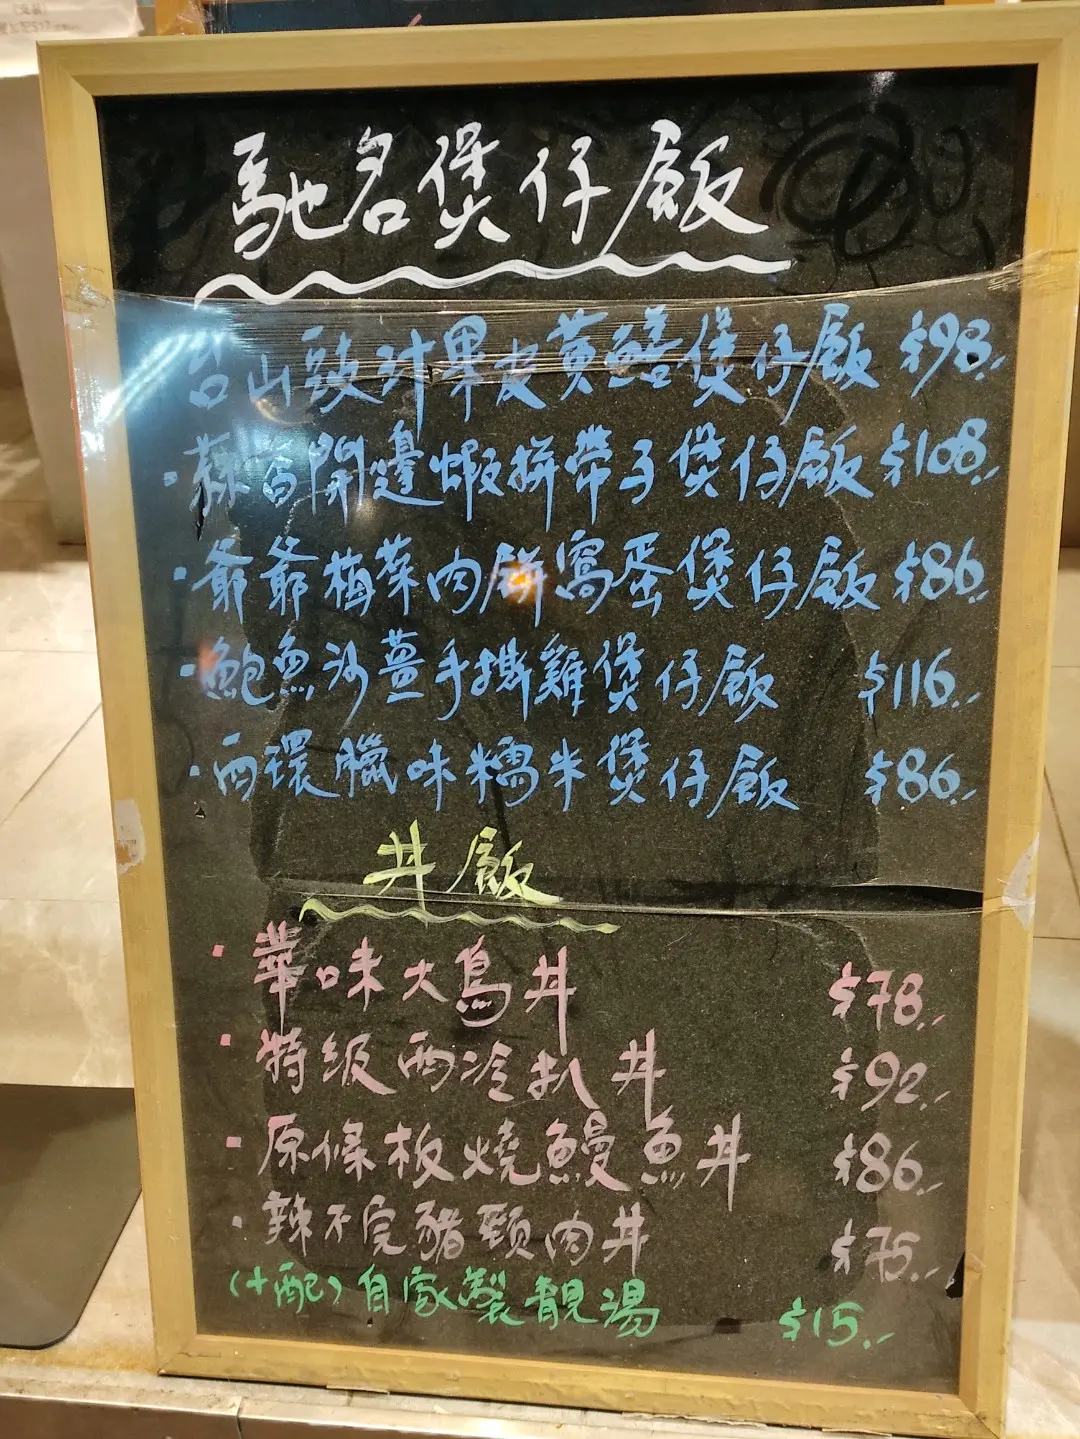 馳名煲仔飯
台山豉汁果皮黃鱔煲仔飯 $98.-
·蒜香開邊蝦拼帶子煲仔飯 $108.-
·爺爺梅菜肉餅窩蛋煲仔飯 $86.-
·鮑魚沙薑手撕雞煲仔飯 $116.-
·西環臘味糯米煲仔飯 $86.-
丼飯
·華味大鳥丼 $78.-
·特級西冷扒丼 $92.-
·原條板燒鰻魚丼 $86.-
·辣不完豬頸肉丼 $75.-
(+配)自家製靚湯 $15.-